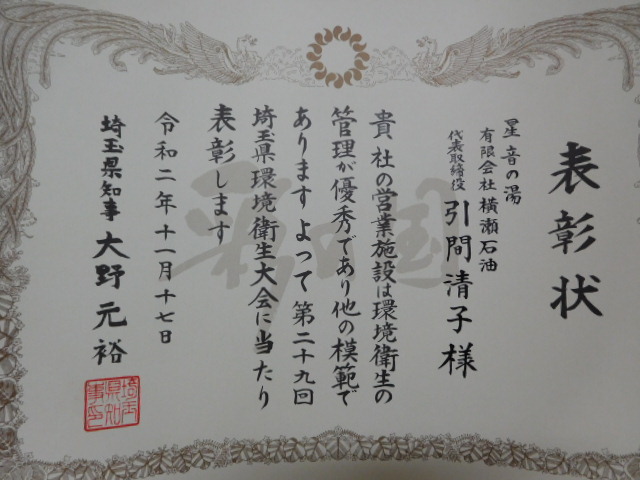 表彰状
星音の湯
有限会社横瀬石油
代表取締役 引間清子様
貴社の営業施設は環境衛生の
管理が優秀であり他の模範で
あります よって第二十九回
埼玉県環境衛生大会に当たり
表彰します
令和二年十一月十七日
埼玉県知事 大野元裕
彩の国
埼玉県知事印